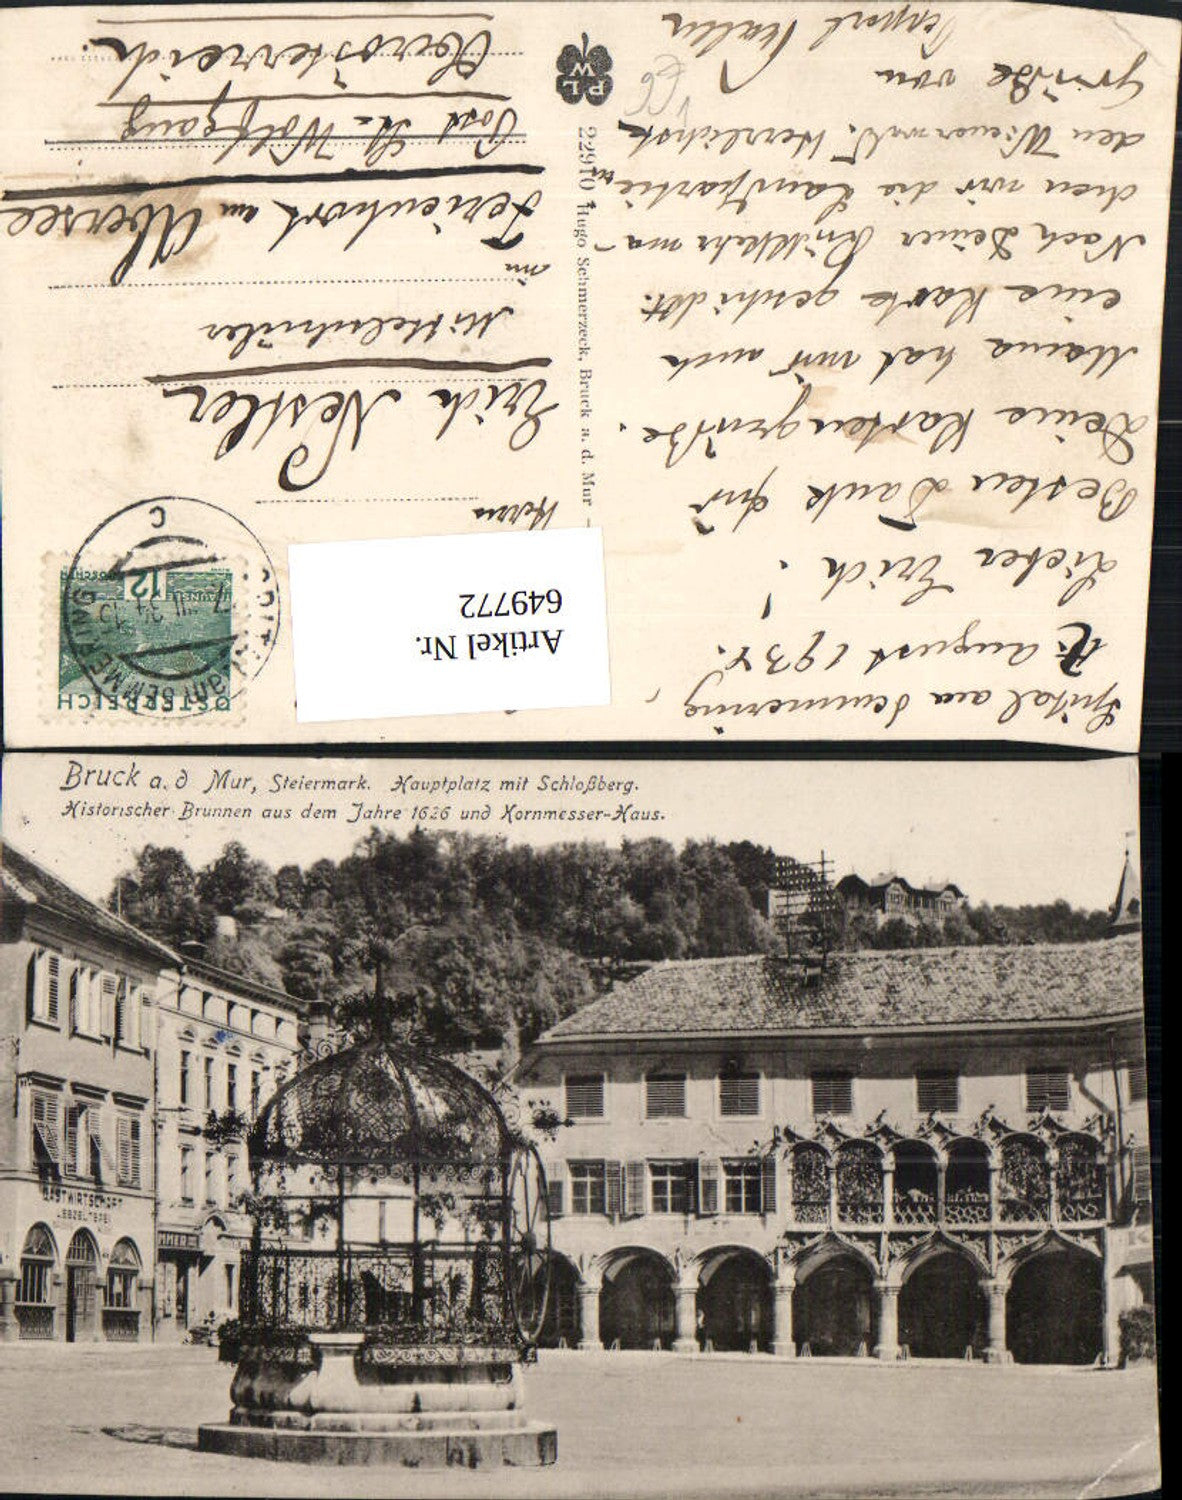 Spital am Semmering,
7. August 1934.
Lieber Erich!
Besten Dank für
Deine Kartengrüße.
Mama hat mir auch
eine Karte geschickt.
Nach Deiner Rückkehr ma-
chen wir die Landpartie in
den Wienerwald. Herzlichste
Grüße von
22910 Hugo Schmerzeck, Bruck a. d. Mur
PLW
Artikel Nr.
649772
ÖSTERREICH
12
SEMMERING
C
Herrn
Erich Nestler
Mittelschüler
im
Ferienhort am Abersee
Post St. Wolfgang
Oberösterreich.
Bruck a. d Mur, Steiermark. Hauptplatz mit Schloßberg.
Historischer Brunnen aus dem Jahre 1626 und Kornmesser-Haus.
GASTWIRTSCHAFT
LEBZELTEREI